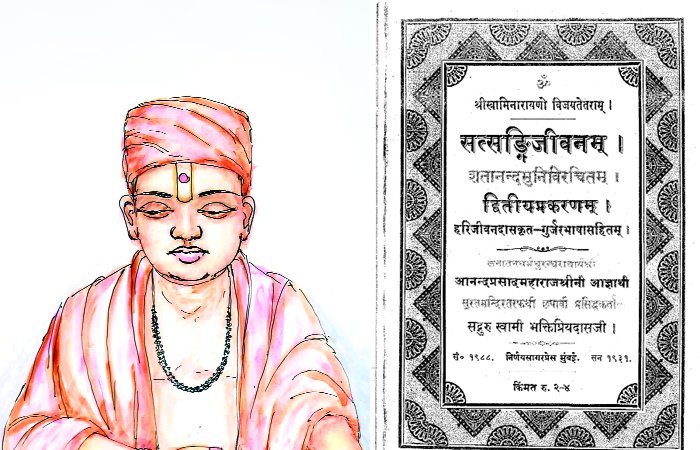 ॐ
श्रीस्वामिनारायणो विजयतेतराम् ।
सत्सङ्गिजीवनम् ।
शतानन्दमुनिविरचितम् ।
द्वितीयप्रकरणम् ।
हरिजीवनदासकृत-गुर्जरभाषासहितम् ।
आनन्दप्रसादमहाराजश्रीनी आज्ञाथी
सुरतमन्दिरतरफथी छपावी प्रसिद्धकर्ता
सद्गुरु स्वामी भक्तिप्रियदासजी ।
सं० १९८८. निर्णयसागरप्रेस मुंबई. सन १९३१.
किंमत रु. २-४